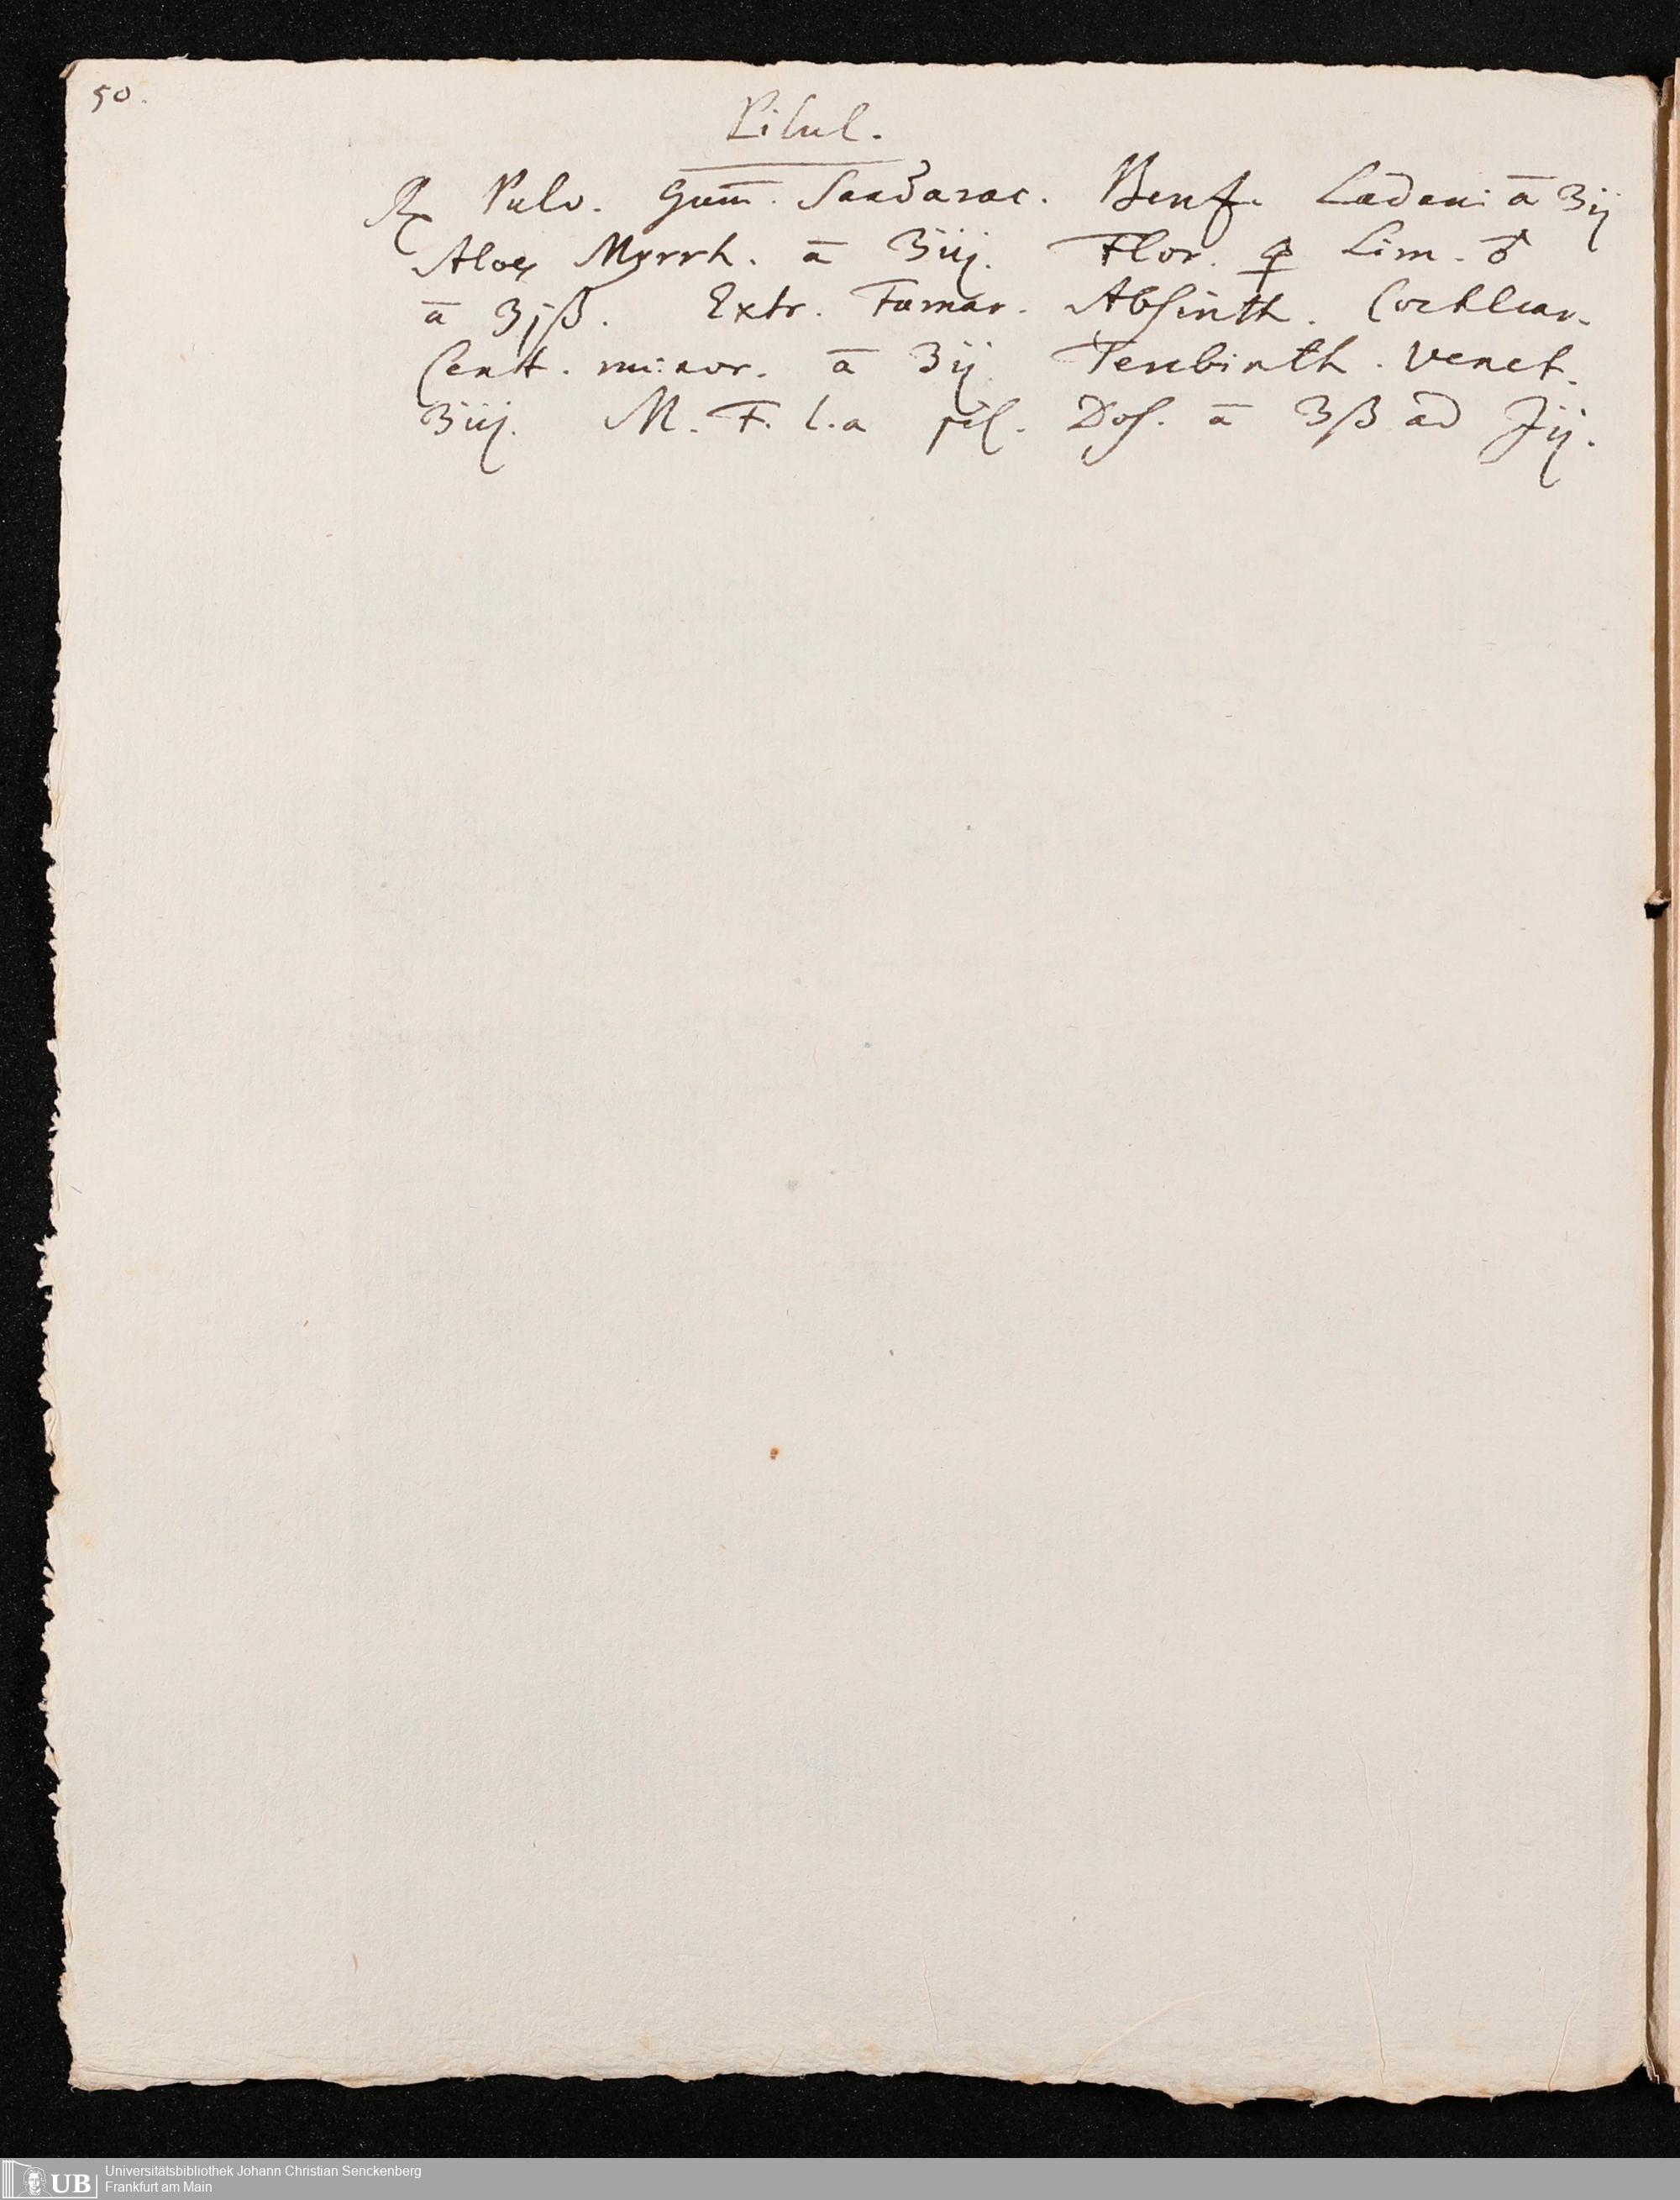 50.
Pilul.
℞ Pulv. Gum̄. Sandarac. Benz. Ladani ā ʒij
Aloes Myrrh. ā ʒiij. Flor. 🜍 Lim. ♂
ā ʒjß. Extr. Fumar. Absinth. Cochlear.
Cent. minor. ā ʒij Terebinth. Venet.
ʒiij. M. F. l. a pil. Dos. a ʒß ad ʒij.
UB
Universitätsbibliothek Johann Christian Senckenberg
Frankfurt am Main